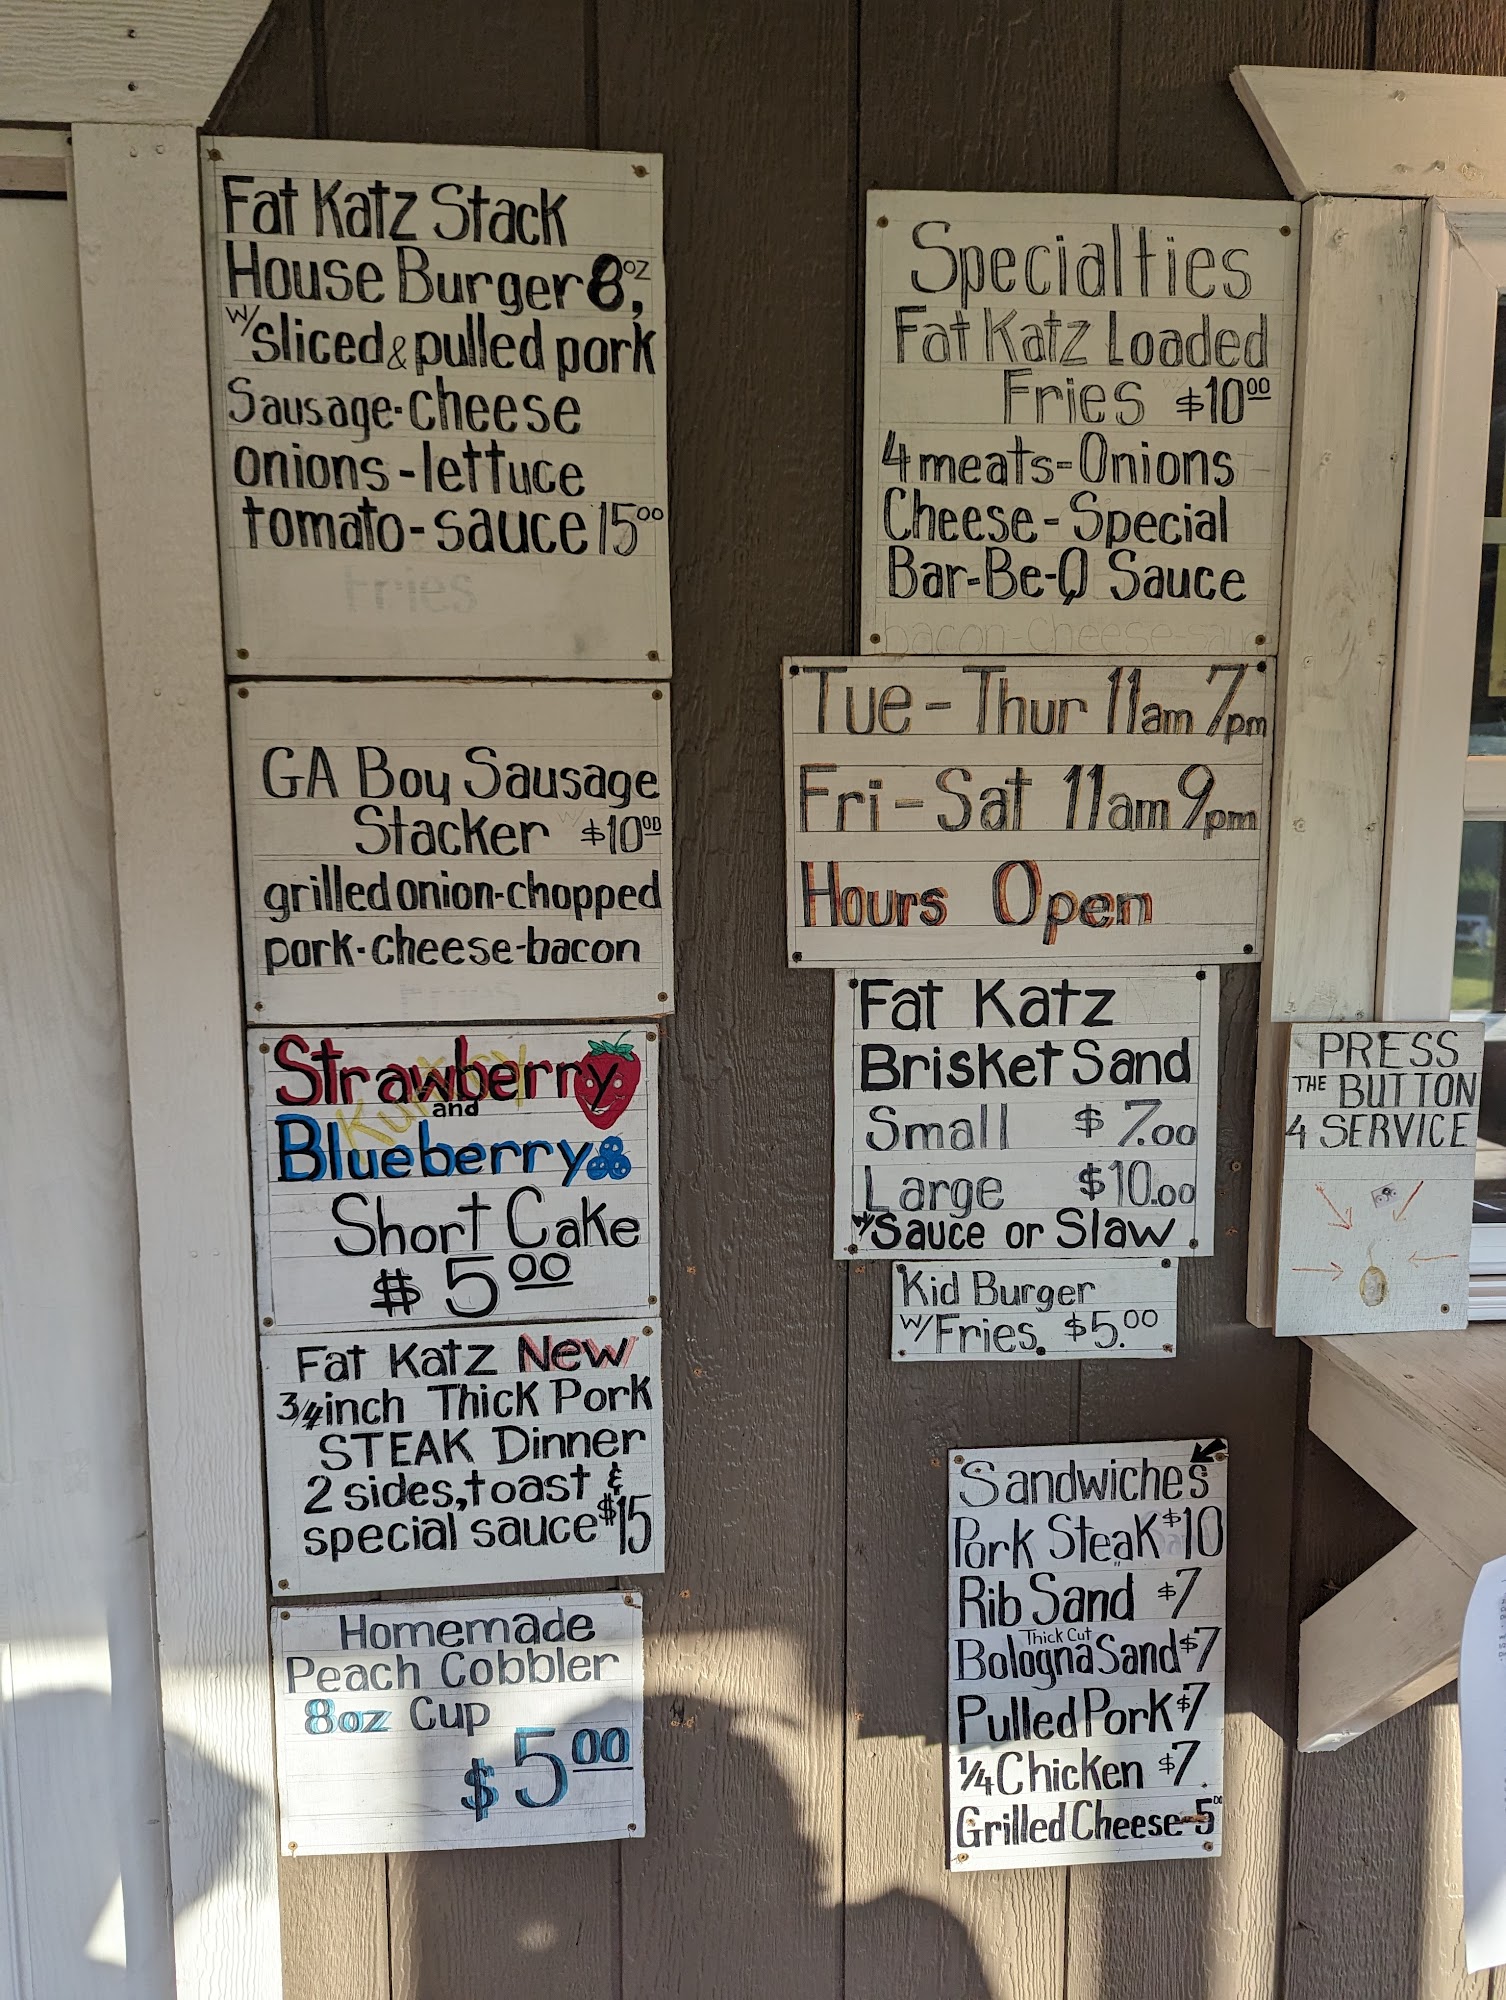 Fat Katz Stack
House Burger 8oz,
w/ sliced & pulled pork
Sausage-cheese
onions-lettuce
tomato-sauce 1500
Fries
GA Boy Sausage
Stacker $1000
grilled onion-chopped
pork-cheese-bacon
Fries
Strawberry
and
Blueberry
Short Cake
$500
Fat Katz New
3/4 inch Thick Pork
STEAK Dinner
2 sides, toast &
special sauce $15
Homemade
Peach Cobbler
8oz Cup
$500
Specialties
Fat Katz Loaded
Fries $1000
4 meats-Onions
Cheese-Special
Bar-Be-Q Sauce
bacon-cheese-
Tue-Thur 11am 7pm
Fri-Sat 11am 9pm
Hours Open
Fat Katz
Brisket Sand
Small $7.00
Large $10.00
w/ Sauce or Slaw
Kid Burger
w/ Fries. $5.00
Sandwiches
Pork Steak $10
Rib Sand $7
Thick Cut
Bologna Sand $7
Pulled Pork $7
1/4 Chicken $7.
Grilled Cheese-500
PRESS
THE BUTTON
4 SERVICE